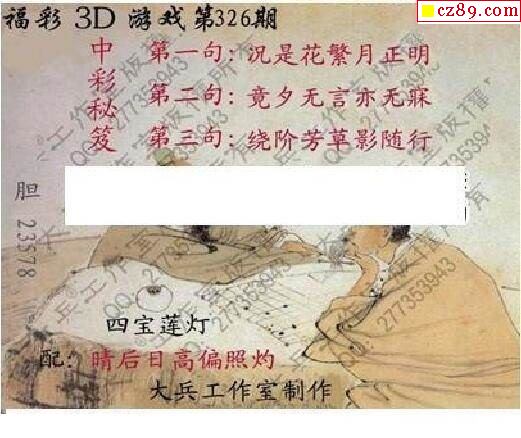 cz89.com
福彩 3D 游戏第326期
中彩秘笈
第一句：况是花繁月正明
第二句：竟夕无言亦无寐
第三句：绕阶芳草影随行
胆 23578
四宝莲灯
配：晴后日高偏照灼
大兵工作室制作
大兵工作室版權所有
QQ:277353943